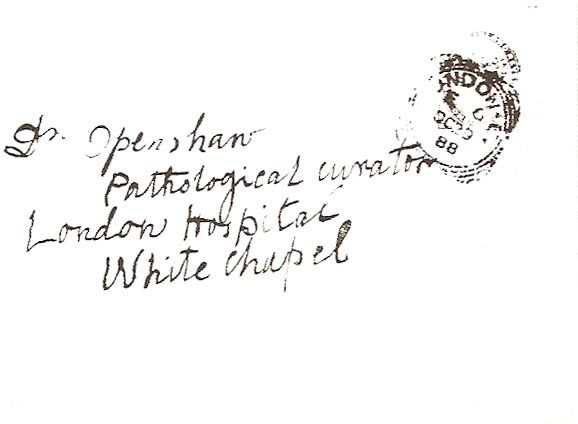 Dr. Openshaw
Pathological curator
London Hospital
White chapel
LONDON. E.
OC29
88